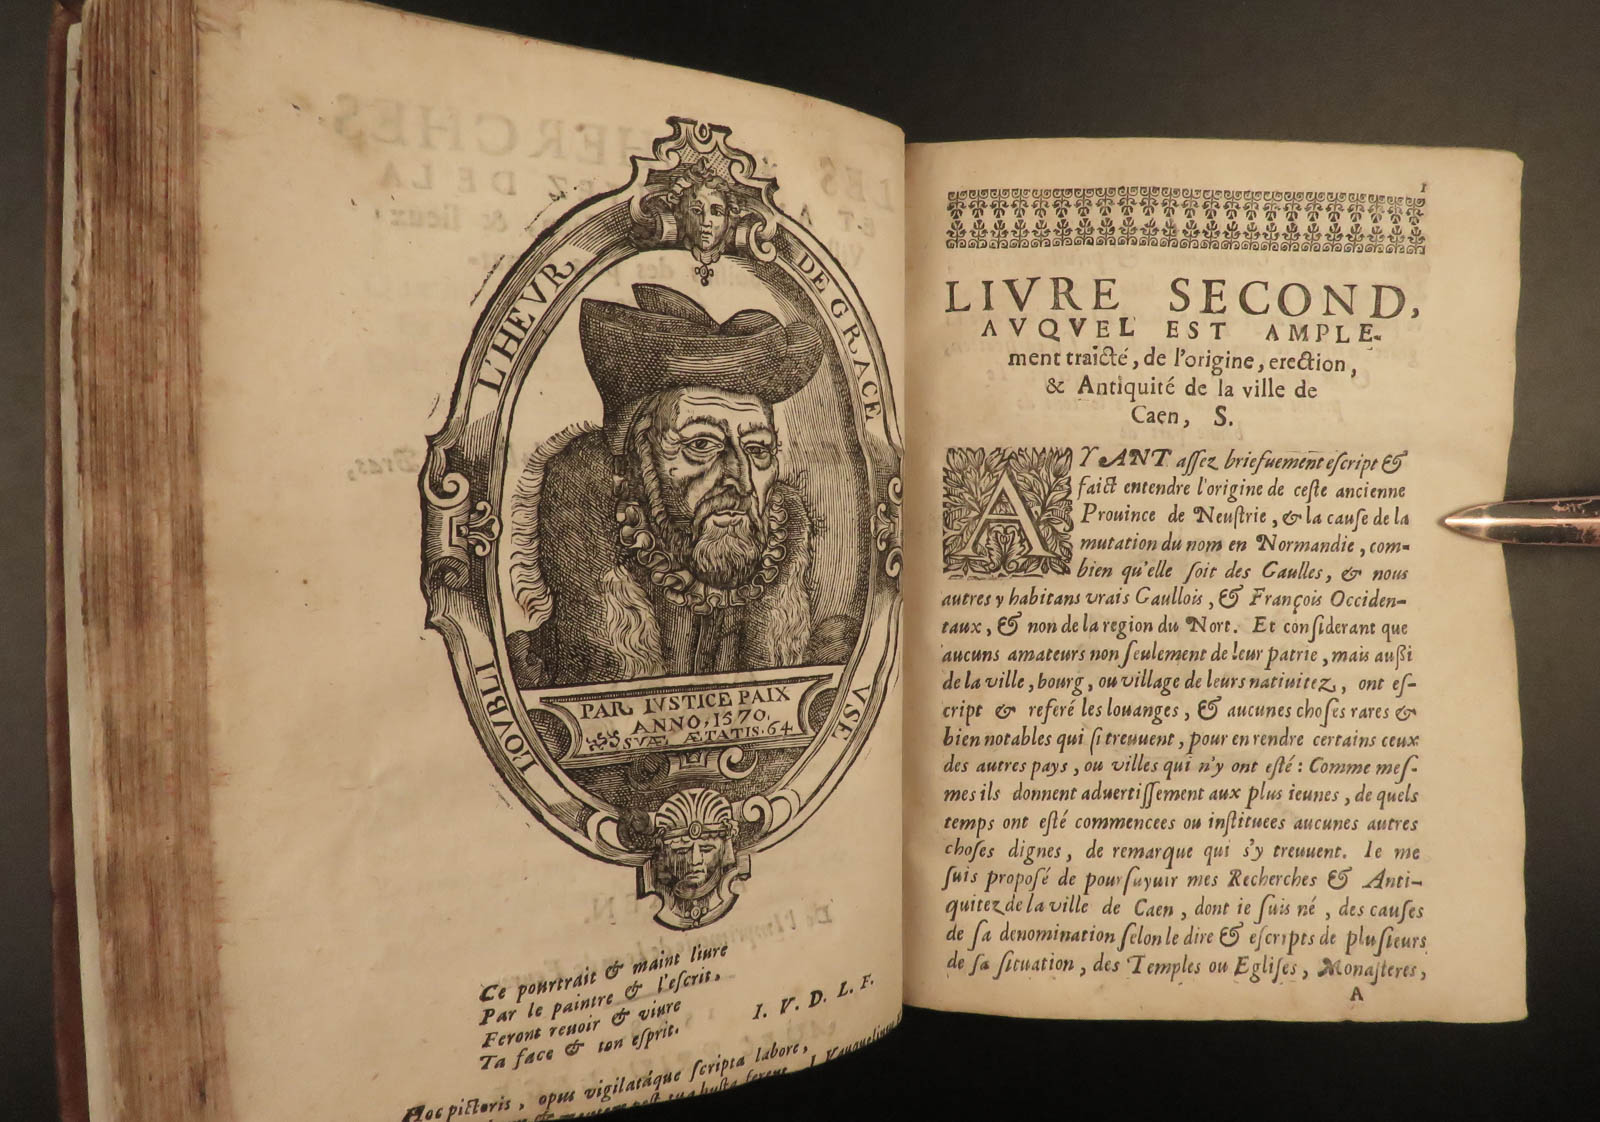 L'HEVR
DE GRACE
VSE
L'OVBLI
PAR IVSTICE PAIX
ANNO, 1570.
SVÆ, ÆTATIS. 64.
Ce pourtrait & maint liure
Par le paintre & l'escrit,
Feront reuoir & viure
Ta face & ton esprit.
I. V. D. L. F.
Hoc pictoris, opus vigilatáque scripta labore,
1
LIVRE SECOND,
AVQVEL EST AMPLE-
ment traicté, de l'origine, erection,
& Antiquité de la ville de
Caen, S.
AYANT assez briefuement escript &
faict entendre l'origine de ceste ancienne
Prouince de Neustrie, & la cause de la
mutation du nom en Normandie, com-
bien qu'elle soit des Gaulles, & nous
autres y habitans vrais Gaullois, & François Occiden-
taux, & non de la region du Nort. Et considerant que
aucuns amateurs non seulement de leur patrie, mais aussi
de la ville, bourg, ou village de leurs natiuitez, ont es-
cript & referé les louanges, & aucunes choses rares &
bien notables qui si treuuent, pour en rendre certains ceux
des autres pays, ou villes qui n'y ont esté: Comme mes-
mes ils donnent aduertissement aux plus ieunes, de quels
temps ont esté commencees ou instituees aucunes autres
choses dignes, de remarque qui s'y treuuent. Ie me
suis proposé de poursuyuir mes Recherches & Anti-
quitez de la ville de Caen, dont ie suis né, des causes
de sa denomination selon le dire & escripts de plusieurs
de sa situation, des Temples ou Eglises, Monasteres,
A